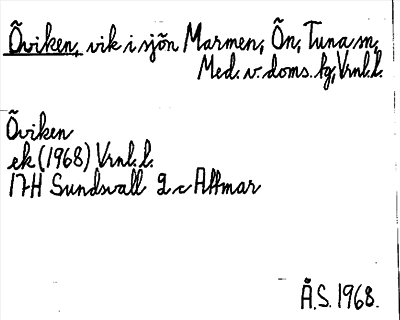 Öviken, vik i sjön Marmen, Ön, Tuna sn,
Med. v. doms. fg, Vrnl. l.
Öviken
ek (1968) Vrnl. l.
17H Sundsvall 2 c Attmar
Å.S. 1968.